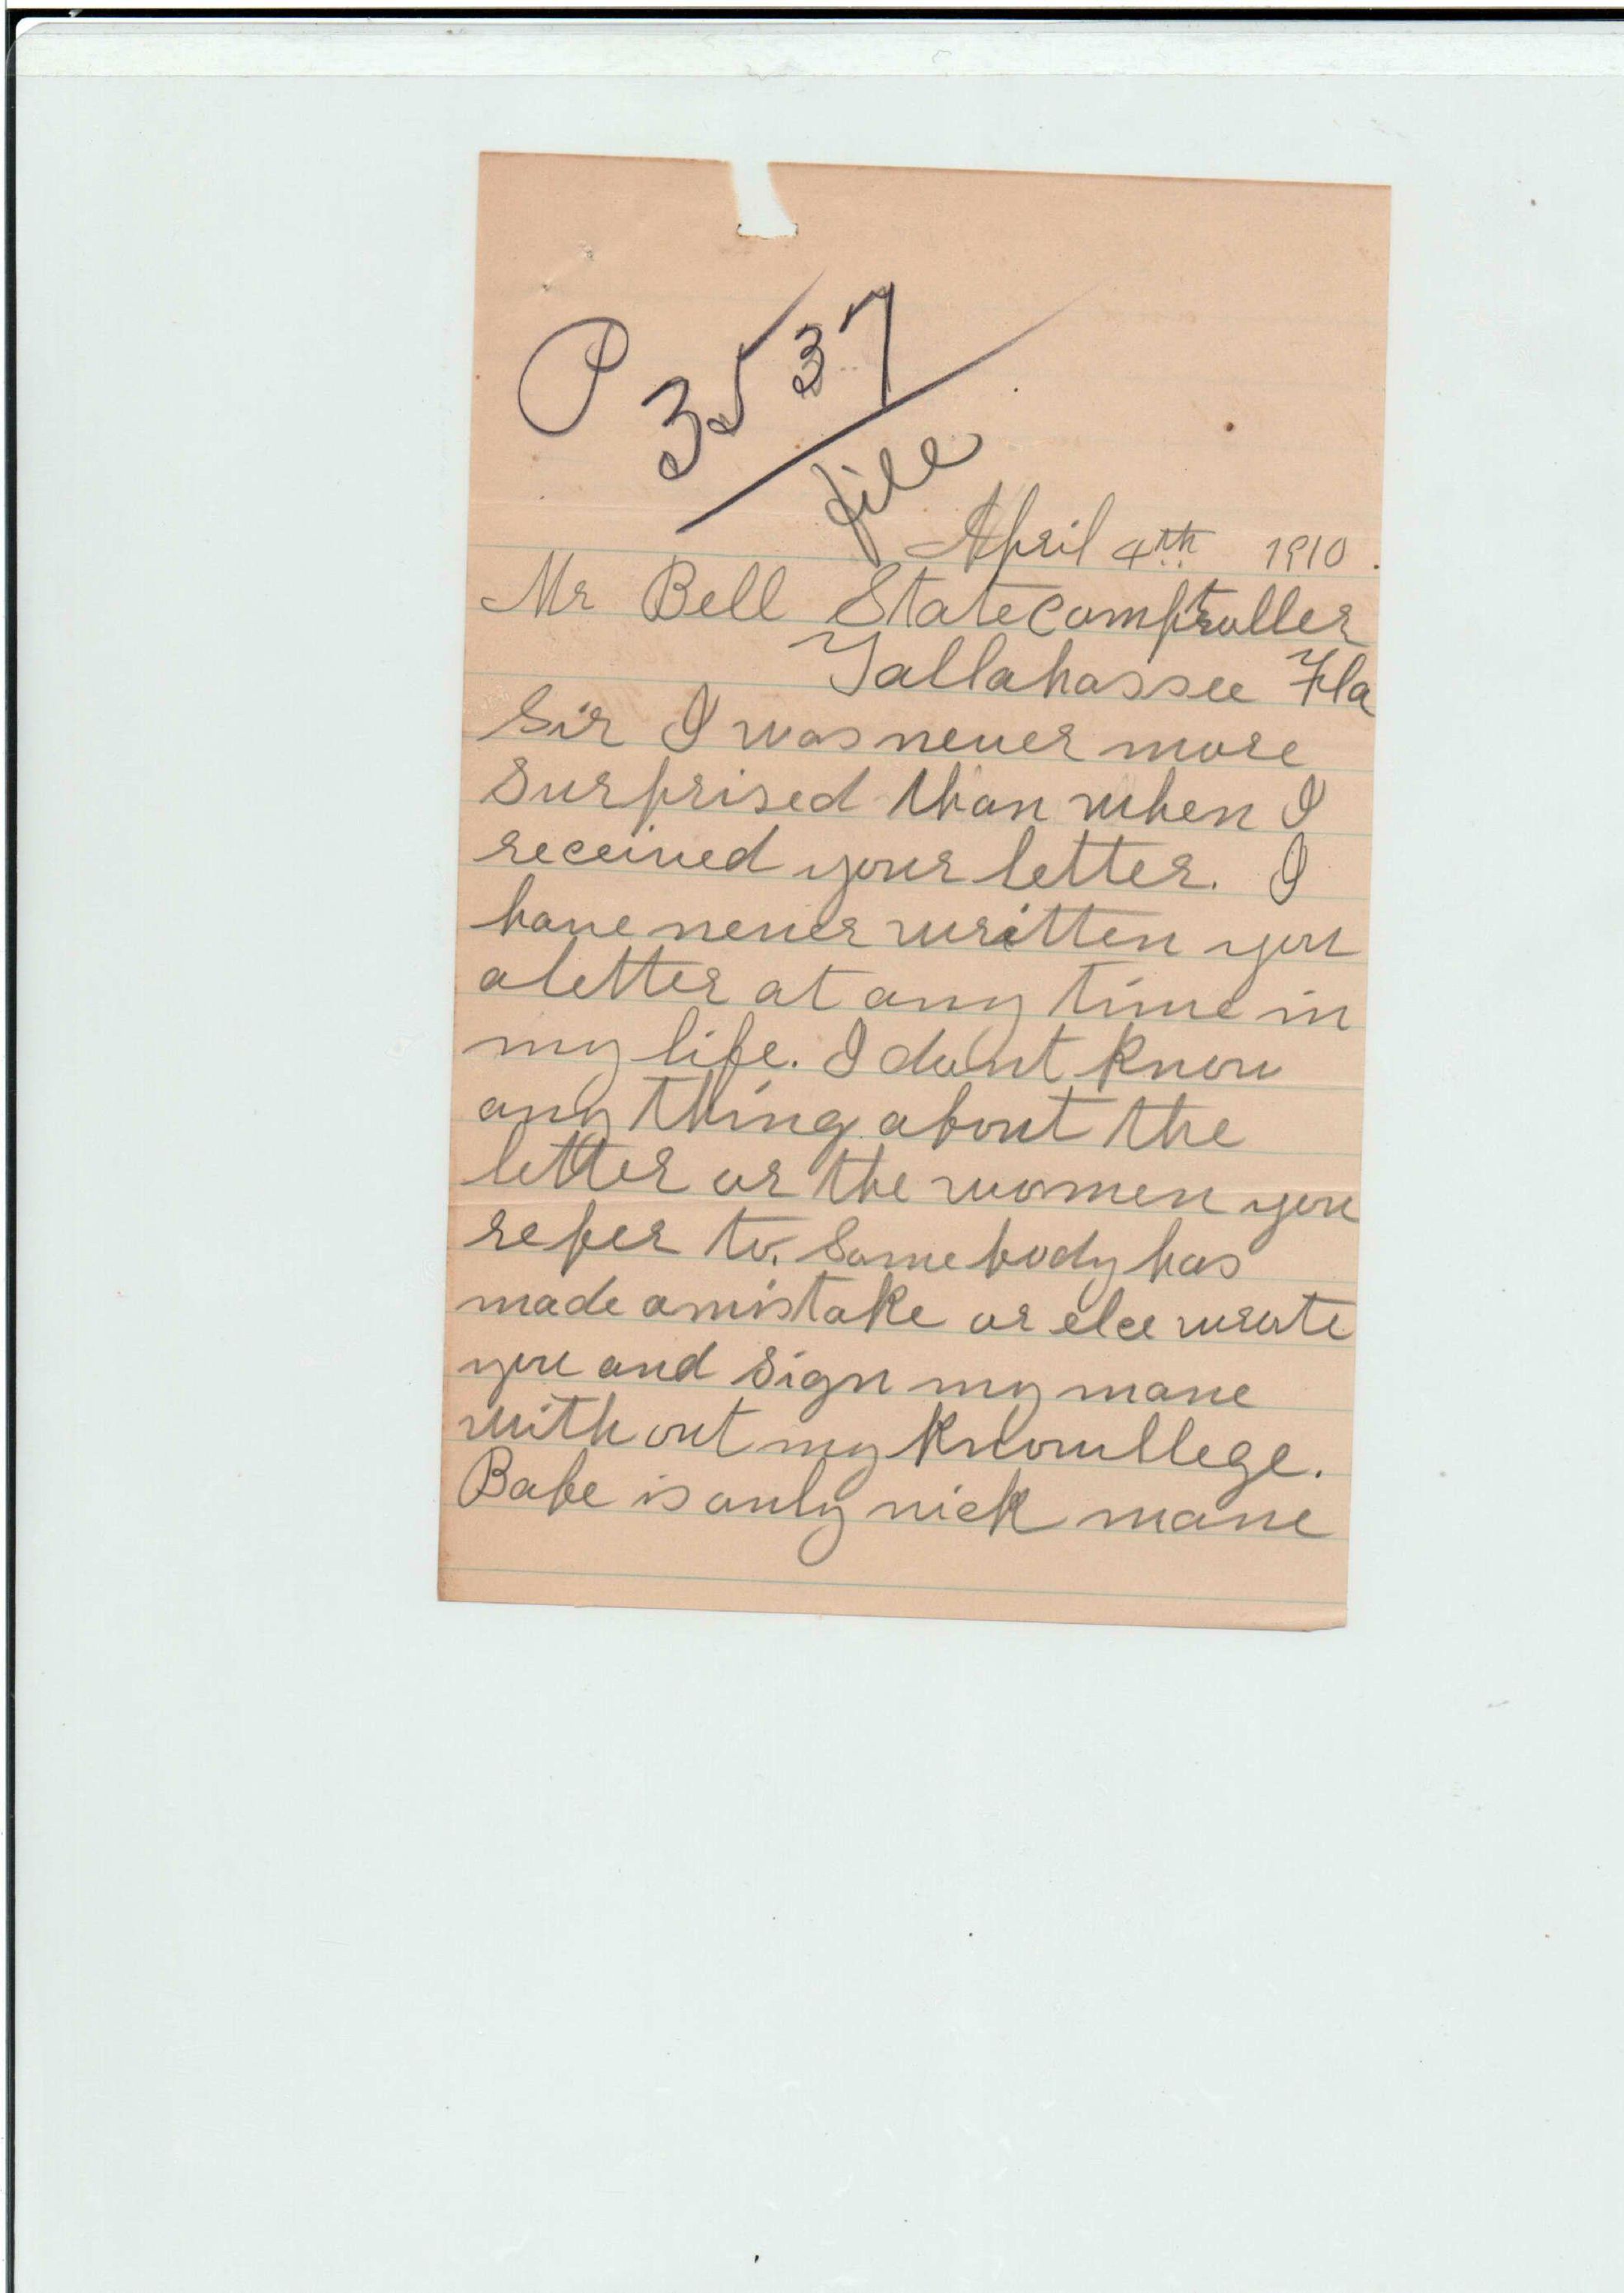 P 3537
file
April 4th 1910.
Mr Bell State Comptroller
Tallahassee Fla
Sir I was never more
surprised than when I
received your letter. I
have never written you
a letter at any time in
my life. I dont know
any thing about the
letter or the women you
refer to. Some body has
made a mistake or else wrote
you and sign my mane
with out my knowllege.
Babe is only nick mane